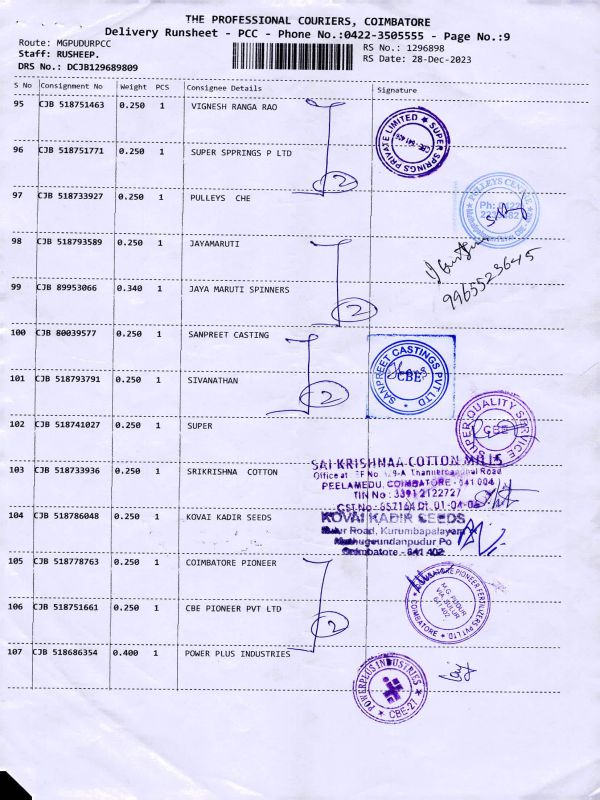 THE PROFESSIONAL COURIERS, COIMBATORE
Delivery Runsheet - PCC - Phone No.:0422-3505555 - Page No.:9
Route: MGPUDURPCC
RS No.: 1296898
Staff: RUSHEEP.
RS Date: 28-Dec-2023
DRS No.: DCJB129689809
S No Consignment No Weight PCS Consignee Details Signature
95 CJB 518751463 0.250 1 VIGNESH RANGA RAO
SUPER SPRINGS PRIVATE LIMITED
96 CJB 518751771 0.250 1 SUPER SPPRINGS P LTD
2
97 CJB 518733927 0.250 1 PULLEYS CHE
PULLEYS CENTRE
98 CJB 518793589 0.250 1 JAYAMARUTI
9965523645
99 CJB 89953066 0.340 1 JAYA MARUTI SPINNERS
2
100 CJB 80039577 0.250 1 SANPREET CASTING
SANPREET CASTINGS PVT LTD
CBE
101 CJB 518793791 0.250 1 SIVANATHAN
2
102 CJB 518741027 0.250 1 SUPER
SUPER QUALITY SERVICE
CBE
103 CJB 518733936 0.250 1 SRIKRISHNA COTTON
SAI KRISHNAA COTTON MILLS
PEELAMEDU, COIMBATORE - 641 004
TIN No : 33912122727
104 CJB 518786048 0.250 1 KOVAI KADIR SEEDS
KOVAI KADIR SEEDS
Road, Kurumbapalayam
Coimbatore - 641 402
105 CJB 518778763 0.250 1 COIMBATORE PIONEER
COIMBATORE PIONEER FERTILIZERS PVT LTD
M.G. PUDUR
VIA SULUR
106 CJB 518751661 0.250 1 CBE PIONEER PVT LTD
2
107 CJB 518686354 0.400 1 POWER PLUS INDUSTRIES
POWERPLUS INDUSTRIES
CBE-27